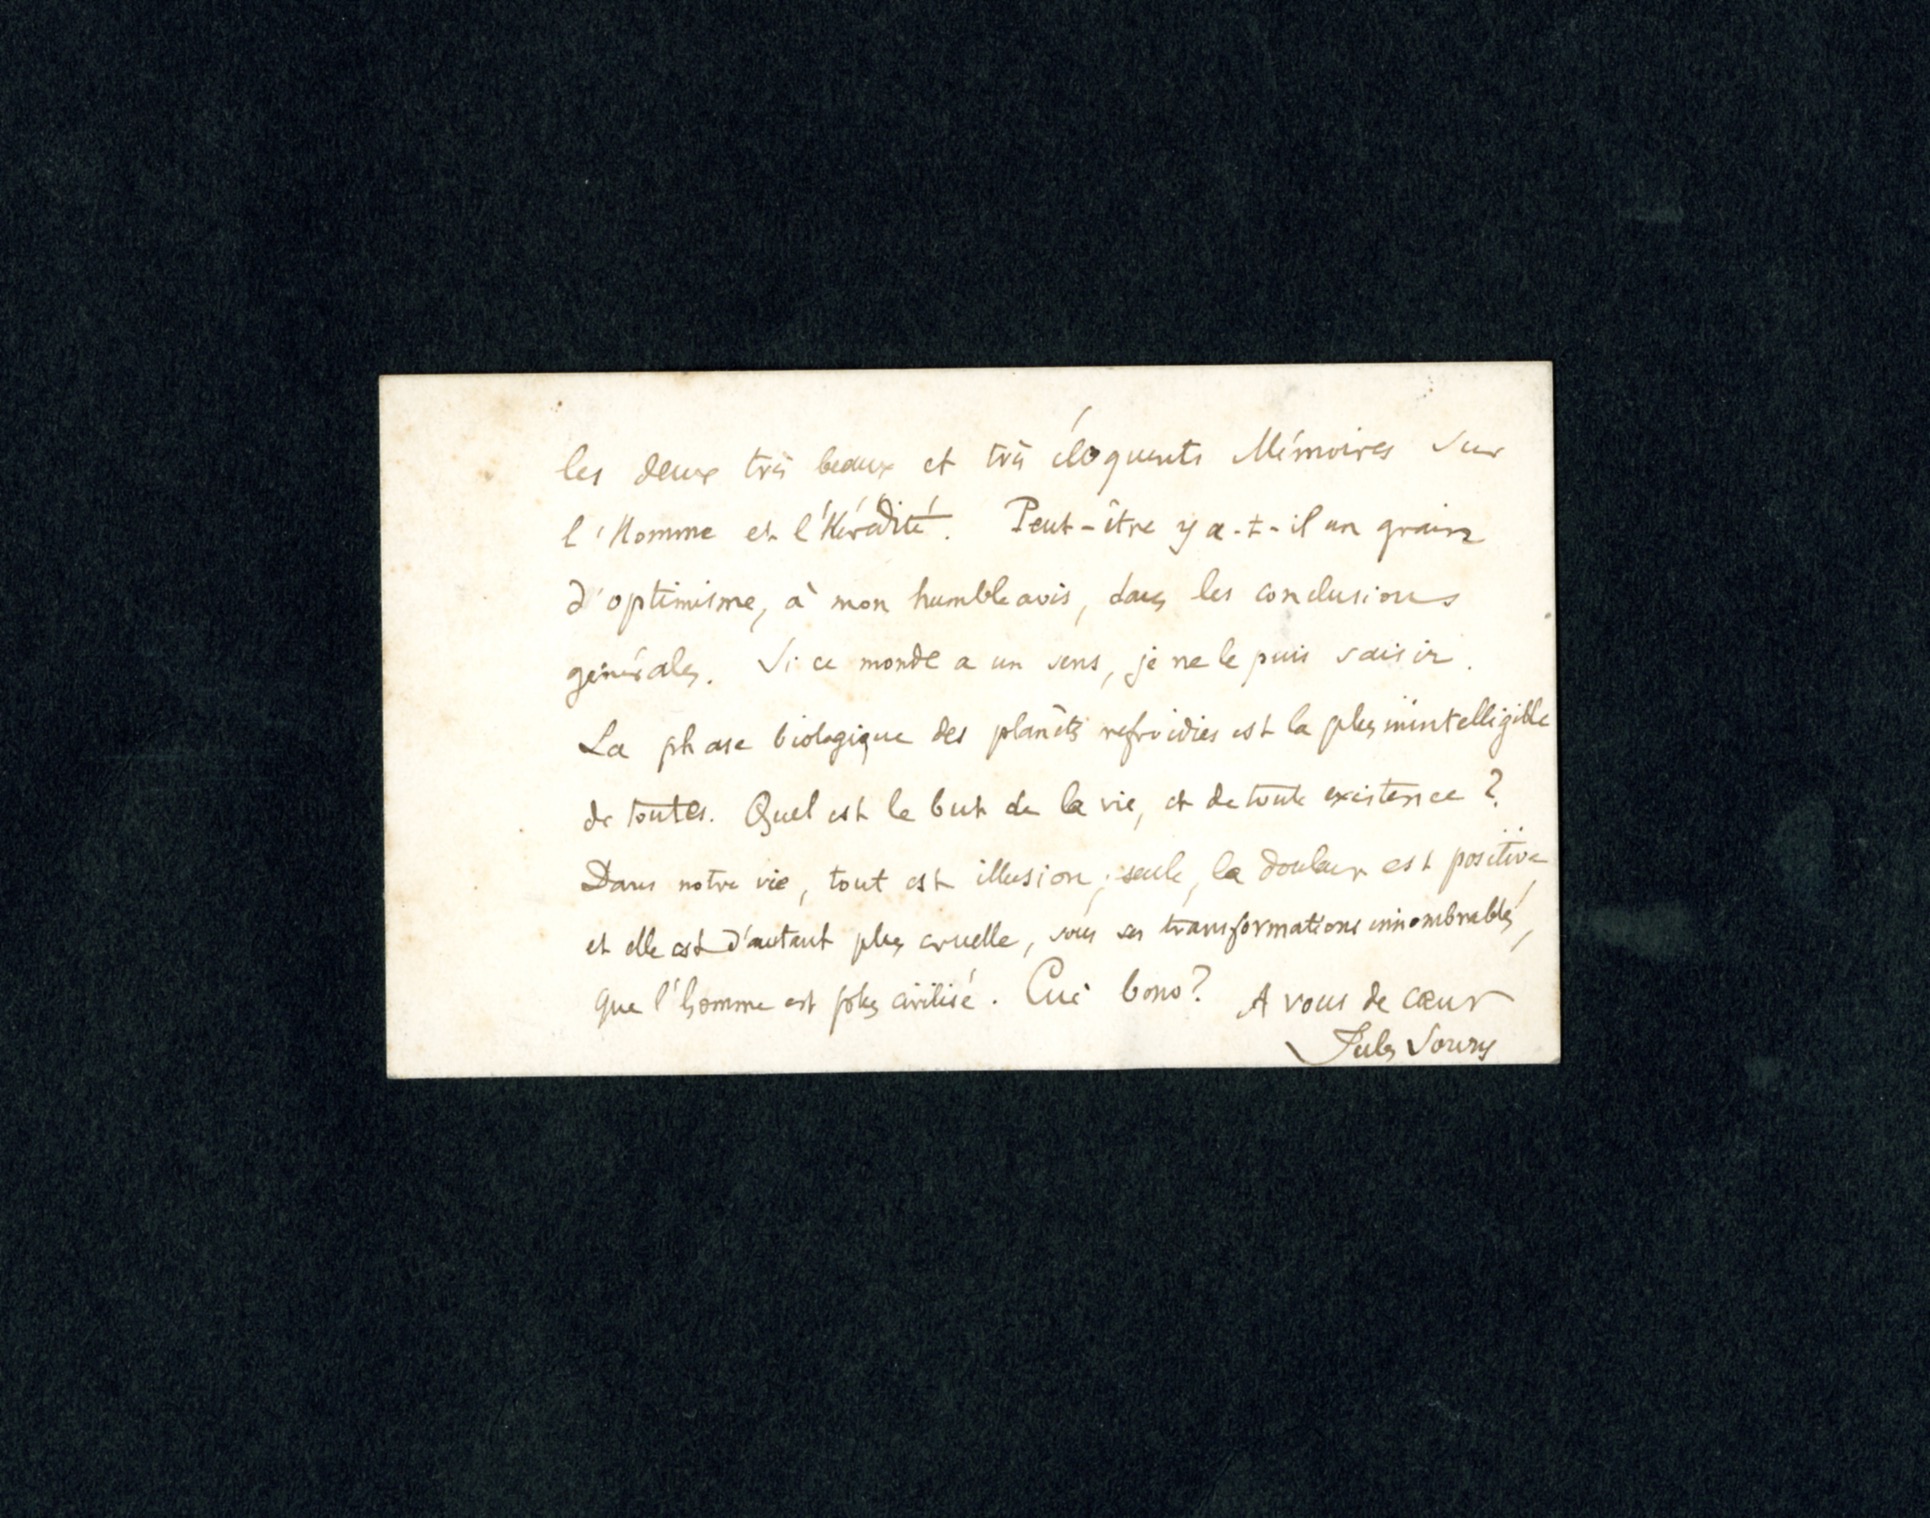 les deux très beaux et très éloquents Mémoires sur
l'Homme et l'Hérédité. Peut-être y a-t-il un grain
d'optimisme, à mon humble avis, dans les conclusions
générales. Si ce monde a un sens, je ne le puis saisir.
La phase biologique des planètes refroidies est la plus inintelligible
de toutes. Quel est le but de la vie, et de toute existence ?
Dans notre vie, tout est illusion ; seule, la douleur est positive
et elle est d'autant plus cruelle, sous ses transformations innombrables,
que l'homme est plus civilisé. Cui bono ? A vous de cœur
Jules Soury